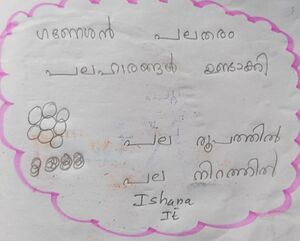 ഗണേശൻ പലതരം
പലഹാരങ്ങൾ ഉണ്ടാക്കി
പല രൂപത്തിൽ
പല നിറത്തിൽ
Ishana